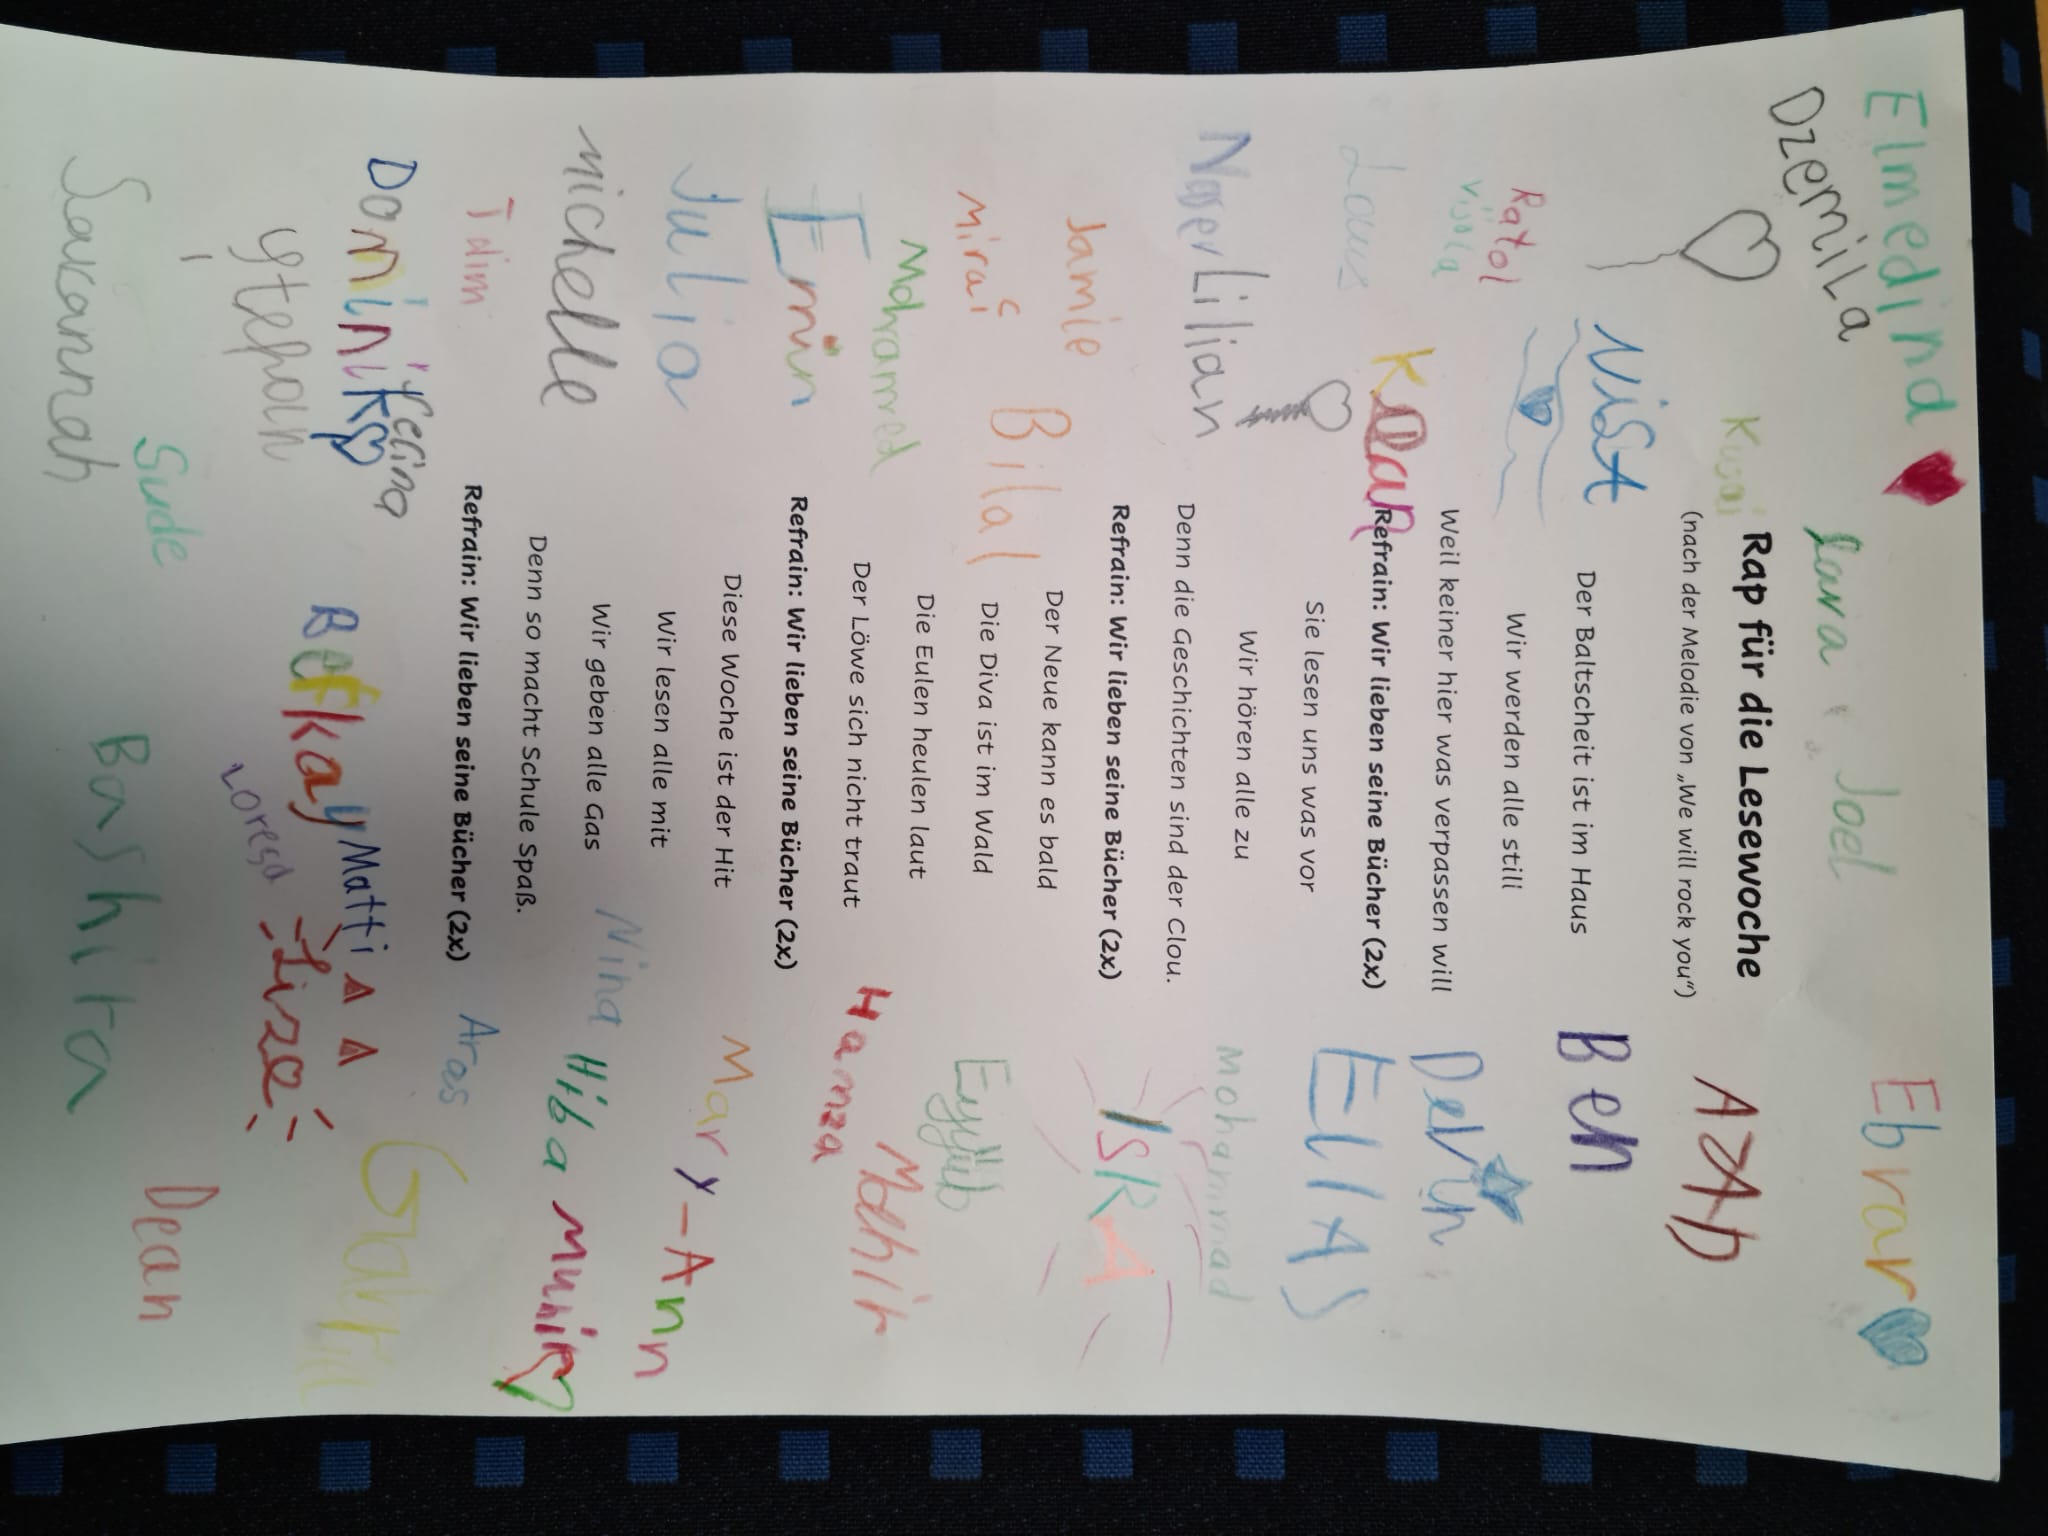 Elmedind
Dzemila
Lara
Joel
Ebrar
Kusai
Rap für die Lesewoche
(nach der Melodie von „We will rock you“)
AZAD
Der Baltscheit ist im Haus
Ben
Wir werden alle still
Weil keiner hier was verpassen will
Refrain: Wir lieben seine Bücher (2x)
ElIAS
Sie lesen uns was vor
Naser Lilian
Wir hören alle zu
Mohammad
Denn die Geschichten sind der Clou.
Jamie
Refrain: Wir lieben seine Bücher (2x)
ISRA
Der Neue kann es bald
Bilal
Die Diva ist im Wald
Eyyüb
Mohammed
Die Eulen heulen laut
Der Löwe sich nicht traut
Hamza
Emin
Refrain: Wir lieben seine Bücher (2x)
Diese Woche ist der Hit
Mary-Ann
Julia
Wir lesen alle mit
Michelle
Wir geben alle Gas
Nina
Hiba
Munir
Denn so macht Schule Spaß.
Refrain: Wir lieben seine Bücher (2x)
Aras
Dominik
Felina
Matti
Befkay
Stephan
Loresa
Sude
Dean
Savannah
Bashira